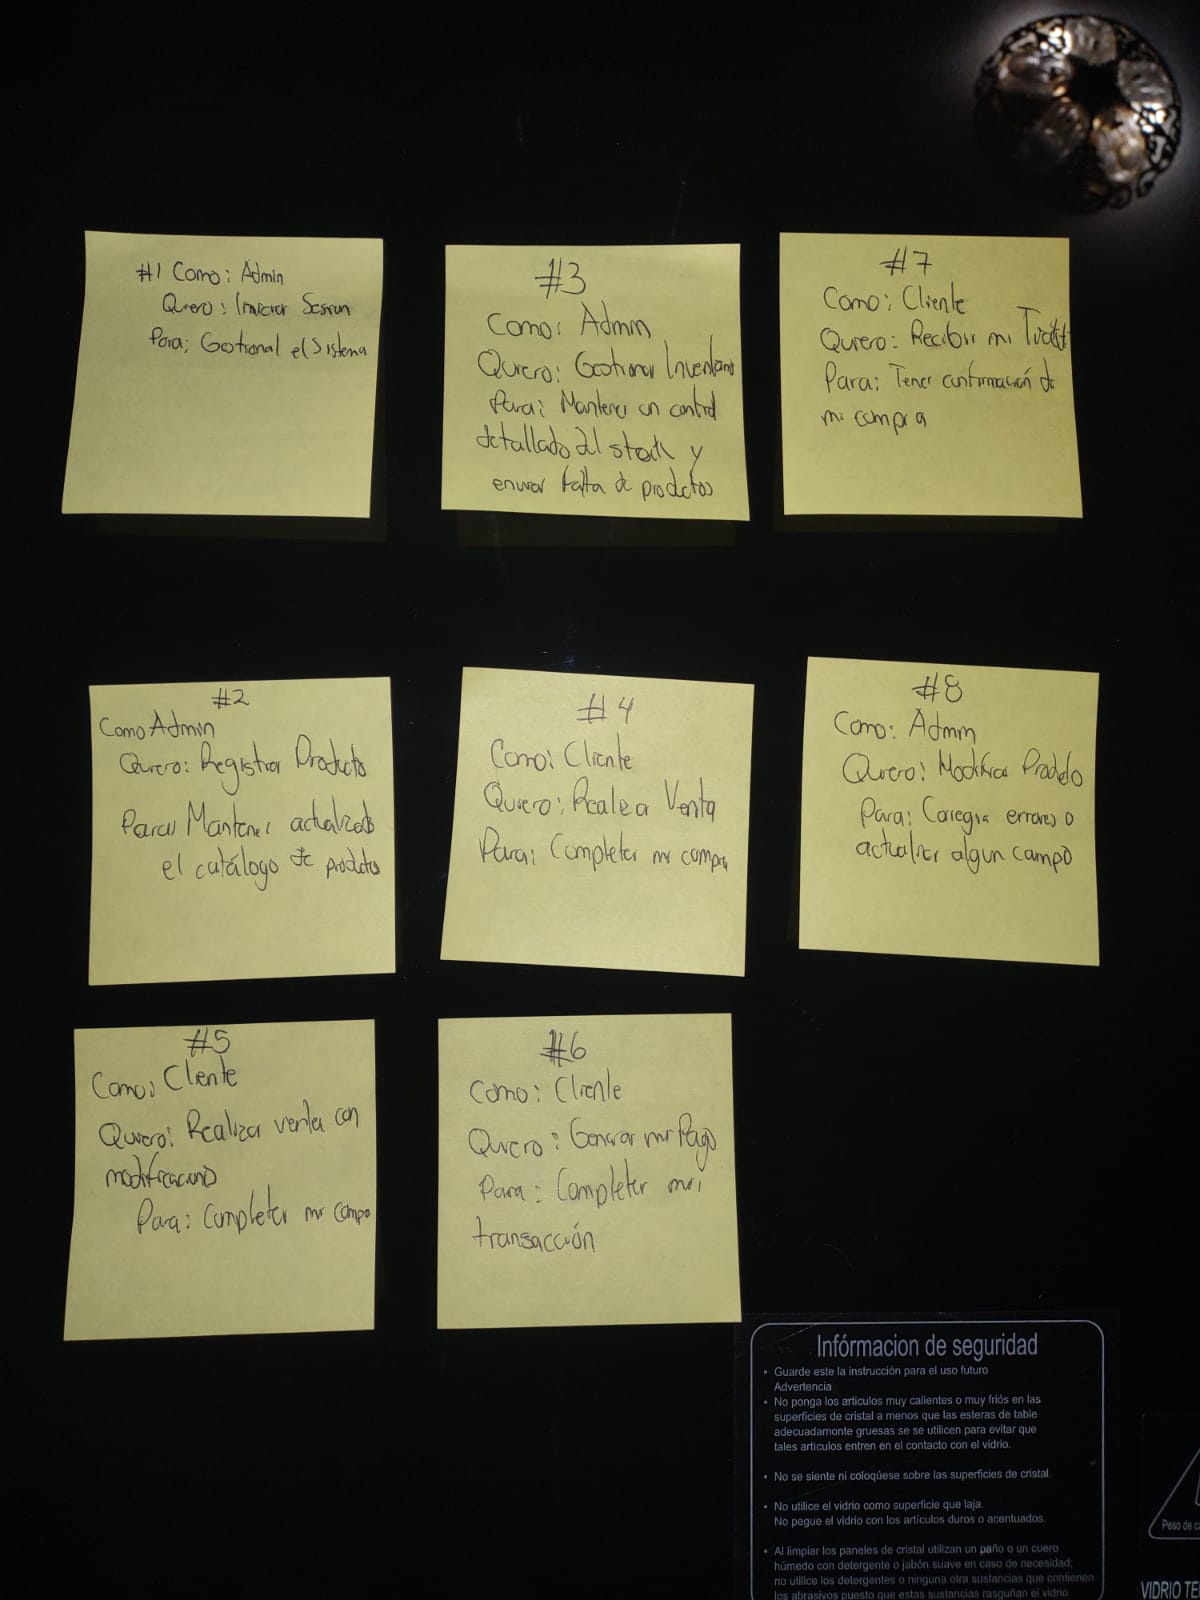 #1 Como: Admin
Quero: Iniciar Sesion
Para; Gestional el Sistema
#3
Como: Admin
Quiero: Gestionar Inventario
Para: Mantener un control
detallado del stock y
enviar falta de productos
#7
Como: Cliente
Quiero: Recibir mi Ticket
Para: Tener confirmación de
mi compra
#2
Como Admin
Quiero: Registrar Producto
Para: Mantener actualizado
el catálogo de productos
#4
Como: Cliente
Quiero: Realiza Venta
Para: Completer mi compra
#8
Como: Admin
Quiero: Modificar Producto
Para: Corregir errores o
actualizar algun campo
#5
Como: Cliente
Quiero: Realizar venta con
modificaciones
Para: Completer mi compra
#6
Como: Cliente
Quiero: Generar mi Pago
Para: Completer mi
transacción
Infórmacion de seguridad
• Guarde este la instrucción para el uso futuro
Advertencia
• No ponga los articulos muy calientes o muy friós en las
superficies de cristal a menos que las esteras de table
adecuadamonte gruesas se se utilicen para evitar que
tales articulos entren en el contacto con el vidrio.
• No se siente ni coloqúese sobre las superficies de cristal.
• No utilice el vidrio como superficie que laja.
No pegue el vidrio con los artículos duros o acentuados.
• Al limpiar los paneles de cristal utilizan un paño o un cuero
húmedo con detergente o jabón suave en caso de necesidad;
no utilice los detergentes o ninguna otra sustancias que contienen
los abrasivos puesto que estas sustancias rasguñan el vidrio.
Peso de
VIDRIO